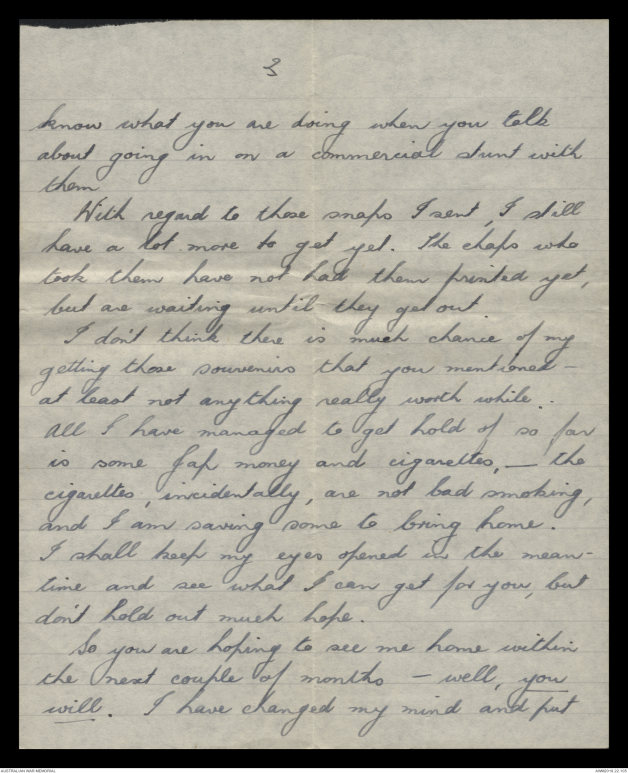 3
know what you are doing when you talk
about going in on a commercial stunt with
them
With regard to those snaps I sent, I still
have a lot more to get yet. The chaps who
took them have not had them printed yet,
but are waiting until they get out
I don't think there is much chance of my
getting those souvenirs that you mentioned –
at least not anything really worth while..
All I have managed to get hold of so far
is some Jap money and cigarettes, — the
cigarettes, incidentally, are not bad smoking,
and I am saving some to bring home.
I shall keep my eyes opened in the mean-
time and see what I can get for you, but
don't hold out much hope.
So you are hoping to see me home within
the next couple of months – well, you
will. I have changed my mind and put
AUSTRALIAN WAR MEMORIAL